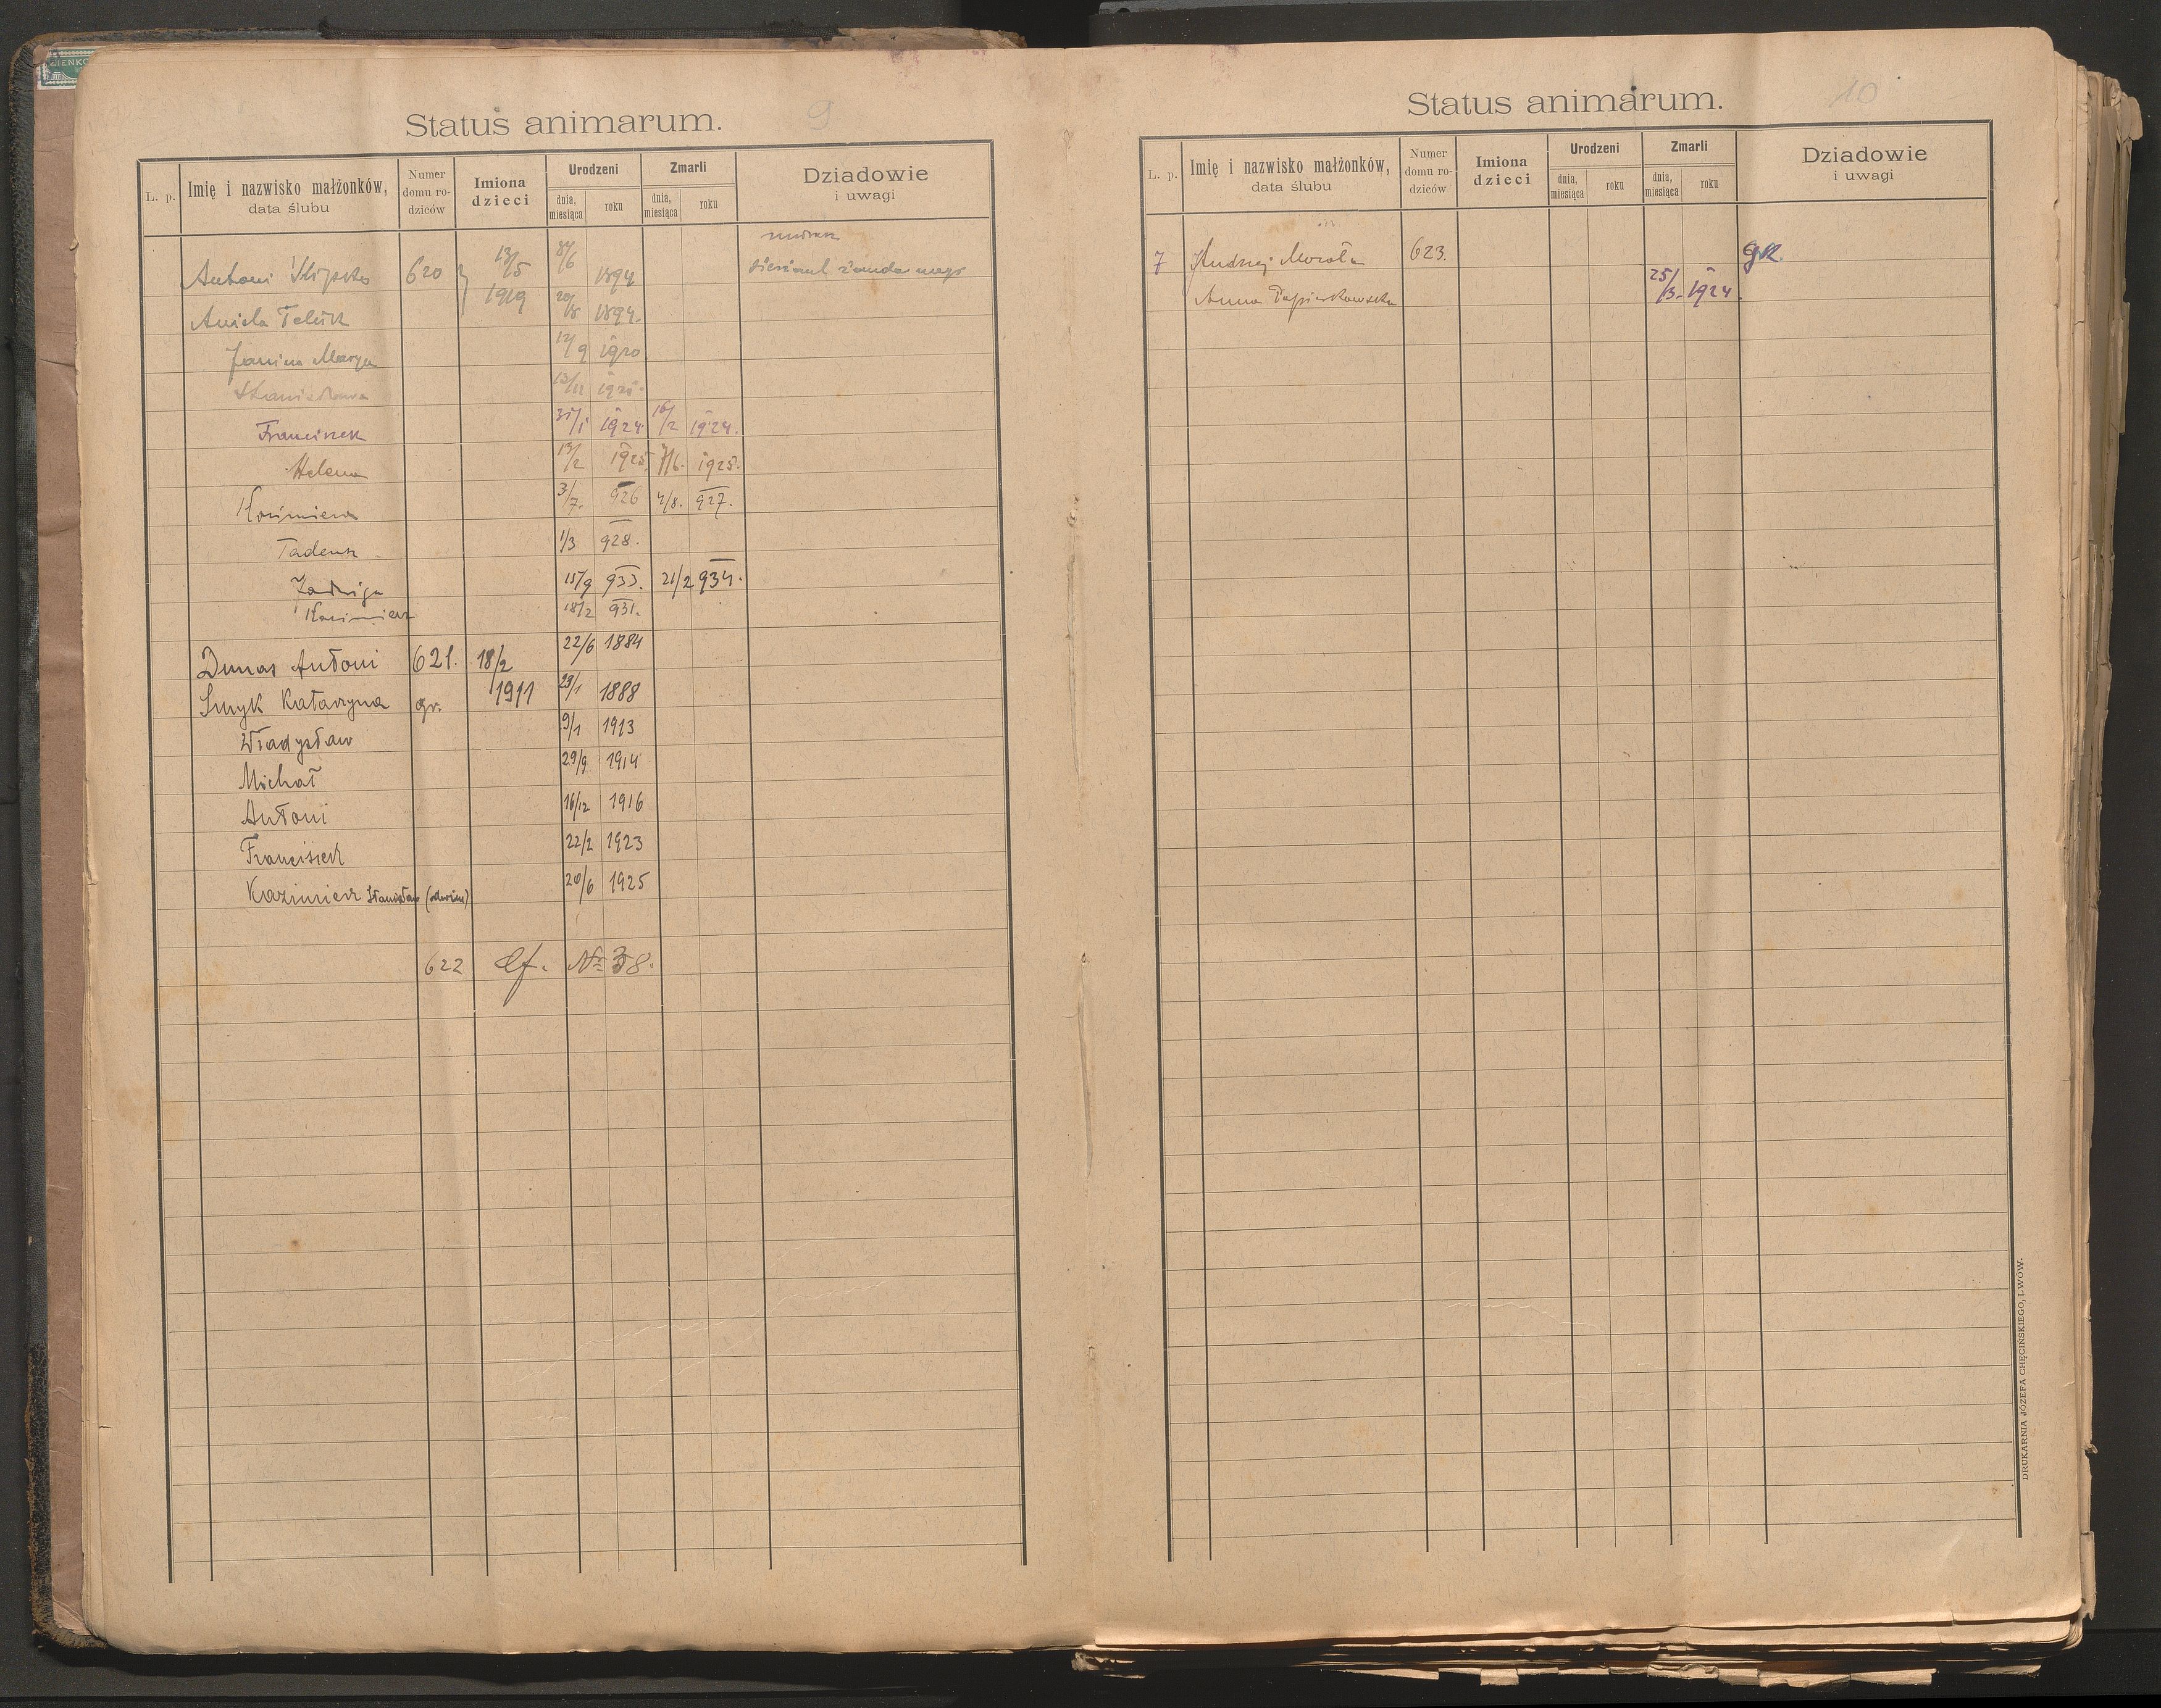 Status animarum. 9
L. p. Imię i nazwisko małżonków, data ślubu
Numer domu rodziców
Imiona dzieci
Urodzeni dnia, miesiąca roku
Zmarli dnia, miesiąca roku
Dziadowie i uwagi
Antoni 620 13/5 8/6 1894
1919
Aniela 20/8 1894.
Janina Marya 12/9 1920
Stanisława 13/11
Franciszek 31/1 1924. 16/2 1924.
Helena 13/2 1925. 7/6. 1925.
Kazimiera 3/7. 926 2/8. 927.
Tadeusz 1/3 928.
Jadwiga 15/9 933. 21/2 934.
Kazimierz 18/2 931.
Dumas Antoni 621. 18/2 22/6 1884
Smyk Katarzyna gr. 1911 29/1 1888
Władysław 9/1 1913
Michał 29/9 1914
Antoni 16/12 1916
Franciszek 22/2 1923
Kazimierz Stanisław 20/6 1925
622 cf. № 38.
Status animarum. 10
L. p. Imię i nazwisko małżonków, data ślubu
Numer domu rodziców
Imiona dzieci
Urodzeni dnia, miesiąca roku
Zmarli dnia, miesiąca roku
Dziadowie i uwagi
7 Andrzej 623. gk.
Anna 25/3. 1924.
DRUKARNIA JÓZEFA CHĘCIŃSKIEGO, LWÓW.